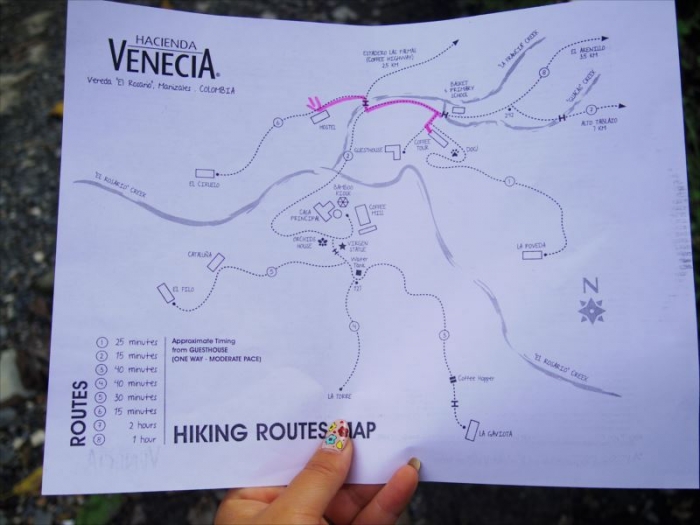 HACIENDA
VENECIA®
Vereda "El Rosario", Manizales. COLOMBIA
(COFFEE HIGHWAY)
25 KM
LA FRANCIA CREEK
EL ARENILLO
3.5 KM
8
BASKET
& PRIMARY
SCHOOL
GUACAO CREEK
7
ALTO TABLAZO
7 KM
HOSTEL
6
COFFEE
TOUR
GUESTHOUSE
DOGS
2
1
EL CIRUELO
"EL ROSARIO" CREEK
BAMBOO
KIOSK
CASA
PRINCIPAL
COFFEE
MILL
ORCHIDS
HOUSE
VIRGIN
STATUE
LA POVEDA
WATER
TANK
CATALUÑA
5
EL FILO
N
4
3
"EL ROSARIO" CREEK
Coffee Hopper
LA TORRE
LA GAVIOTA
ROUTES
1 25 minutes
2 15 minutes
3 40 minutes
4 40 minutes
5 30 minutes
6 15 minutes
7 2 hours
8 1 hour
Approximate Timing
from GUESTHOUSE
(ONE WAY - MODERATE PACE)
HIKING ROUTES MAP